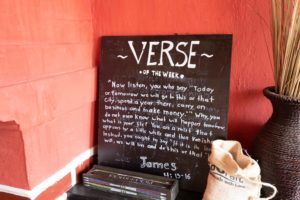 ~ VERSE ~
• OF THE WEEK •
"Now listen, you who say "Today
or tomorrow we will go to this or that
city, spend a year there, carry on
business and make money." Why, you
do not even know what will happen tomorrow
what is your life? You are a mist that
appears for a little while and then vanishes
Instead, you ought to say "If it is the Lord's
will, we will live and do this or that."
James
4:13-16